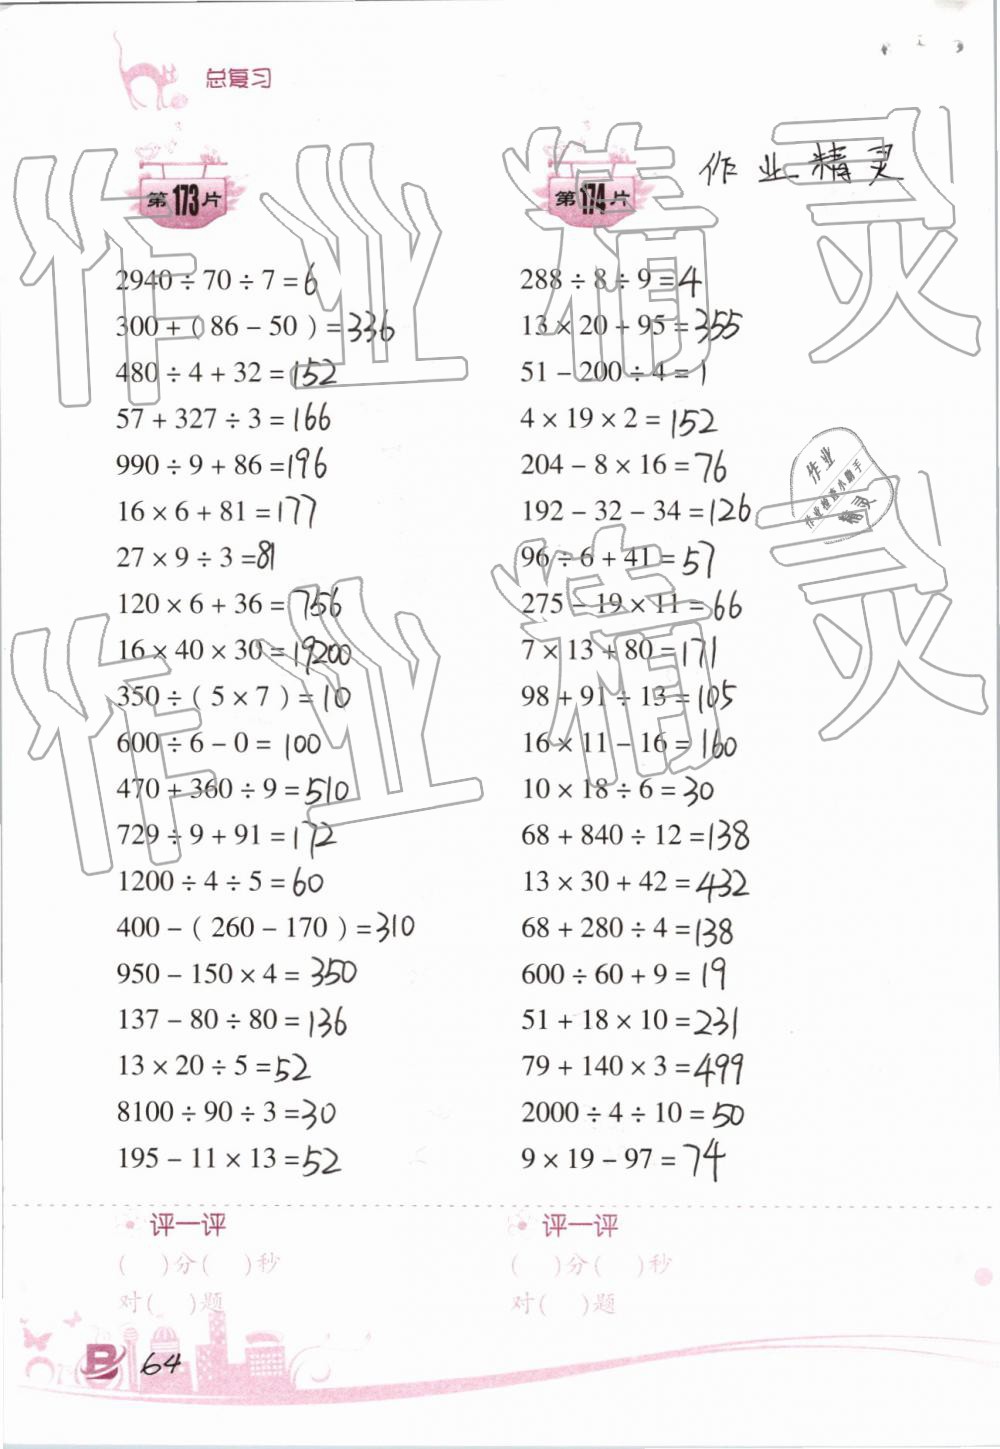 总复习
作业精灵
第173片
2940 ÷ 70 ÷ 7 = 6
300 + ( 86 − 50 ) = 336
480 ÷ 4 + 32 = 152
57 + 327 ÷ 3 = 166
990 ÷ 9 + 86 = 196
16 × 6 + 81 = 177
27 × 9 ÷ 3 = 81
120 × 6 + 36 = 756
16 × 40 × 30 = 19200
350 ÷ ( 5 × 7 ) = 10
600 ÷ 6 − 0 = 100
470 + 360 ÷ 9 = 510
729 ÷ 9 + 91 = 172
1200 ÷ 4 ÷ 5 = 60
400 − ( 260 − 170 ) = 310
950 − 150 × 4 = 350
137 − 80 ÷ 80 = 136
13 × 20 ÷ 5 = 52
8100 ÷ 90 ÷ 3 = 30
195 − 11 × 13 = 52
评一评
( )分( )秒
对( )题
第174片
288 ÷ 8 ÷ 9 = 4
13 × 20 + 95 = 355
51 − 200 ÷ 4 = 1
4 × 19 × 2 = 152
204 − 8 × 16 = 76
192 − 32 − 34 = 126
96 ÷ 6 + 41 = 57
275 − 19 × 11 = 66
7 × 13 + 80 = 171
98 + 91 ÷ 13 = 105
16 × 11 − 16 = 160
10 × 18 ÷ 6 = 30
68 + 840 ÷ 12 = 138
13 × 30 + 42 = 432
68 + 280 ÷ 4 = 138
600 ÷ 60 + 9 = 19
51 + 18 × 10 = 231
79 + 140 × 3 = 499
2000 ÷ 4 ÷ 10 = 50
9 × 19 − 97 = 74
评一评
( )分( )秒
对( )题
作业精灵
作业精灵
作业
作业检查小助手
精灵
B 64